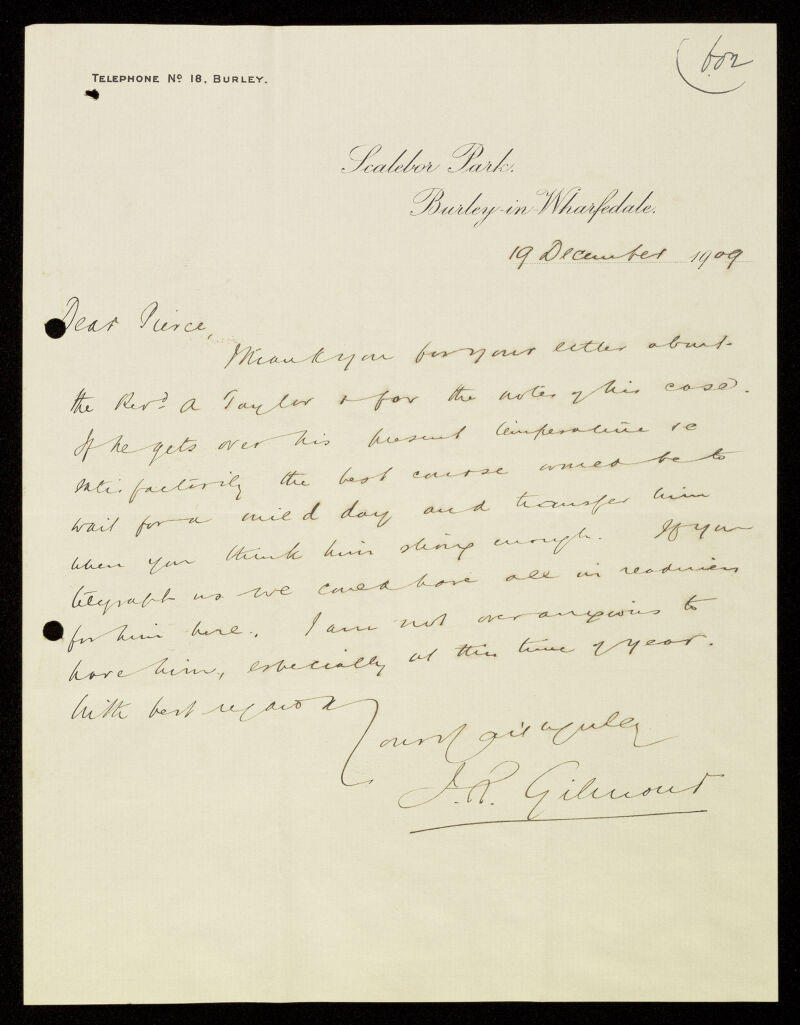 602
TELEPHONE Nº 18, BURLEY.
Scalebor Park.
Burley-in-Wharfedale.
19 December 1909
Dear Pierce,
Thank you for your letter about
the Revd. A Taylor & for the notes of his case.
If he gets over his present temperature &c
satisfactorily the best course would be to
wait for a mild day and transfer him
when you think him strong enough. If you
telegraph us we could have all in readiness
for him here. I am not over anxious to
have him, especially at this time of year.
With best regards
Yours faithfully
J.R. Gilmour